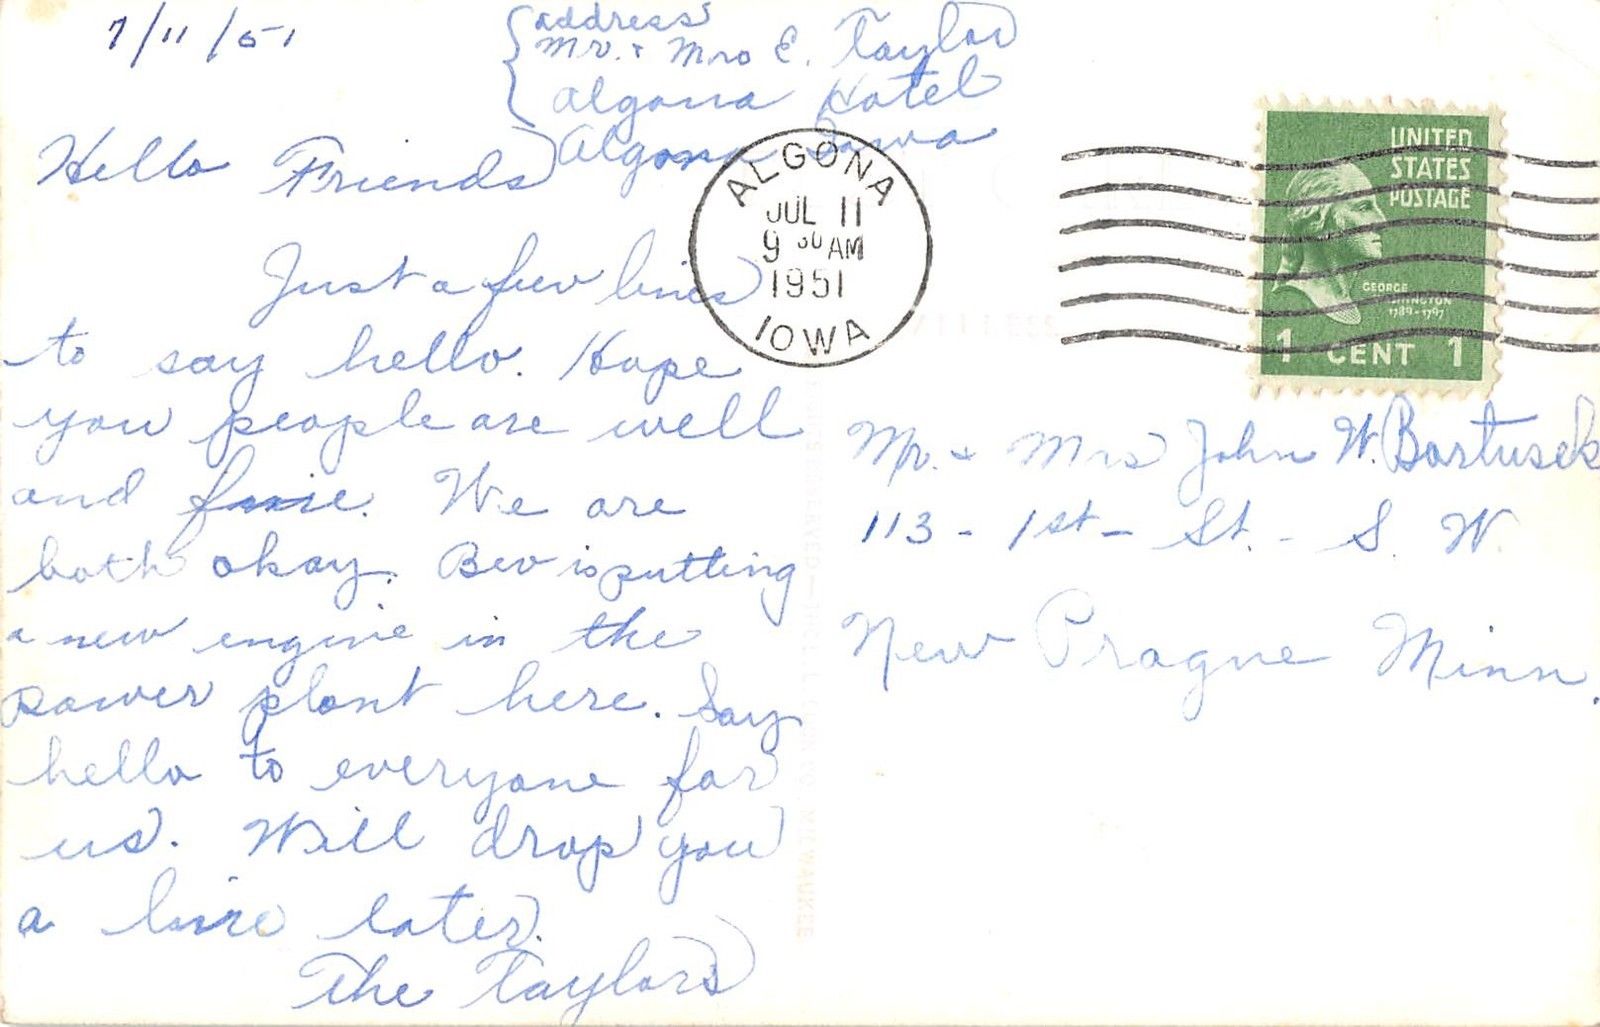 7/11/51
address
Mr. + Mrs E. Taylor
Algona Hotel
Algona Iowa
Hello Friends
Just a few lines
to say hello. Hope
you people are well
and fine. We are
both okay. Bev is putting
a new engine in the
power plant here. Say
hello to everyone for
us. Will drop you
a line later.
The Taylors
ALGONA
JUL 11
9 30 AM
1951
IOWA
UNITED
STATES
POSTAGE
GEORGE
WASHINGTON
1789-1797
1 CENT 1
Mr. + Mrs John W. Bartusek
113 - 1st - St. - S. W.
New Prague Minn.
MILWAUKEE